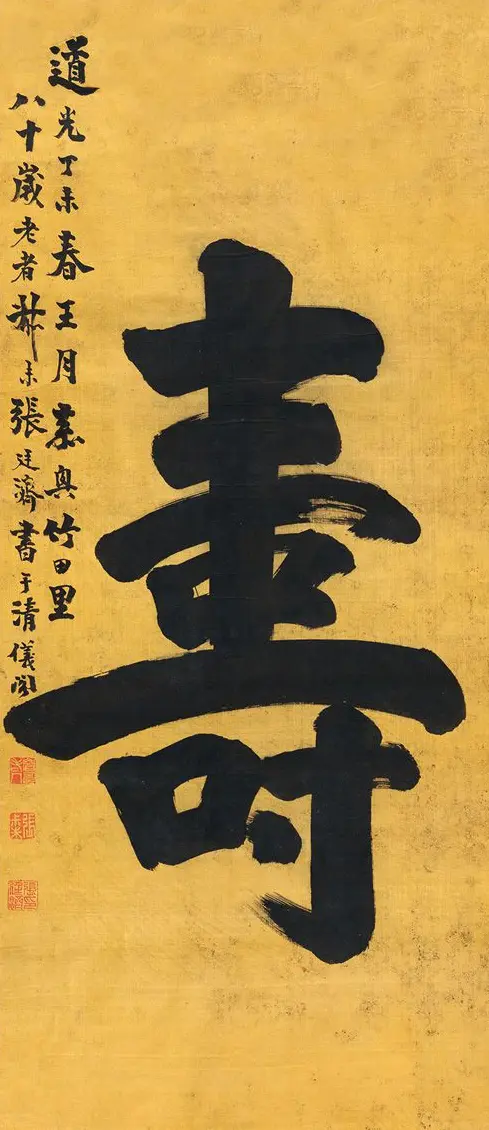 壽
道光丁未春王月嘉興竹田里
八十歲老者叔未張廷濟書于清儀閣